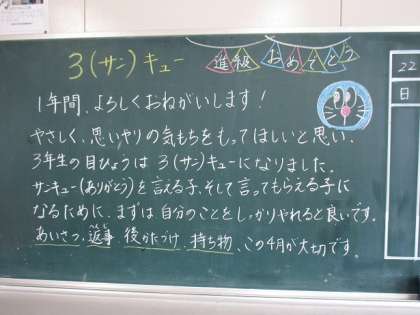 3(サン)キュー
進級おめでとう
1年間、よろしくおねがいします!
やさしく、思いやりの気もちをもってほしいと思い、
3年生の目ひょうは 3(サン)キューになりました。
サンキュー(ありがとう)を 言える子、そして 言ってもらえる子に
なるために、まずは 自分のことをしっかりやれると良いです。
あいさつ、返事、後かたづけ、持ち物、この4月が大切です。
22
日